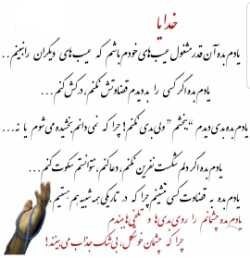 خدایا
یادم بده آن قدر مشغول عیب‌های خودم باشم که عیب‌های دیگران را نبینم...
یادم بده اگر کسی را بد دیدم قضاوتش نکنم، درکش کنم...
یادم بده بدی دیدم "ببخشم" ولی بدی نکنم! چرا که نمی‌دانم بخشیده می‌شوم یا نه...
یادم بده اگر دلم شکست نفرین نکنم، دعا کنم، نتوانستم سکوت کنم...
یادم بده به قضاوت کسی ننشینم چرا که در تاریکی همه شبیه هم هستیم.
یادم بده چشمانم را روی بدی‌ها و تلخی‌ها ببندم
چرا که چشمان خوشگل، بی‌شک جذاب می‌بینند!